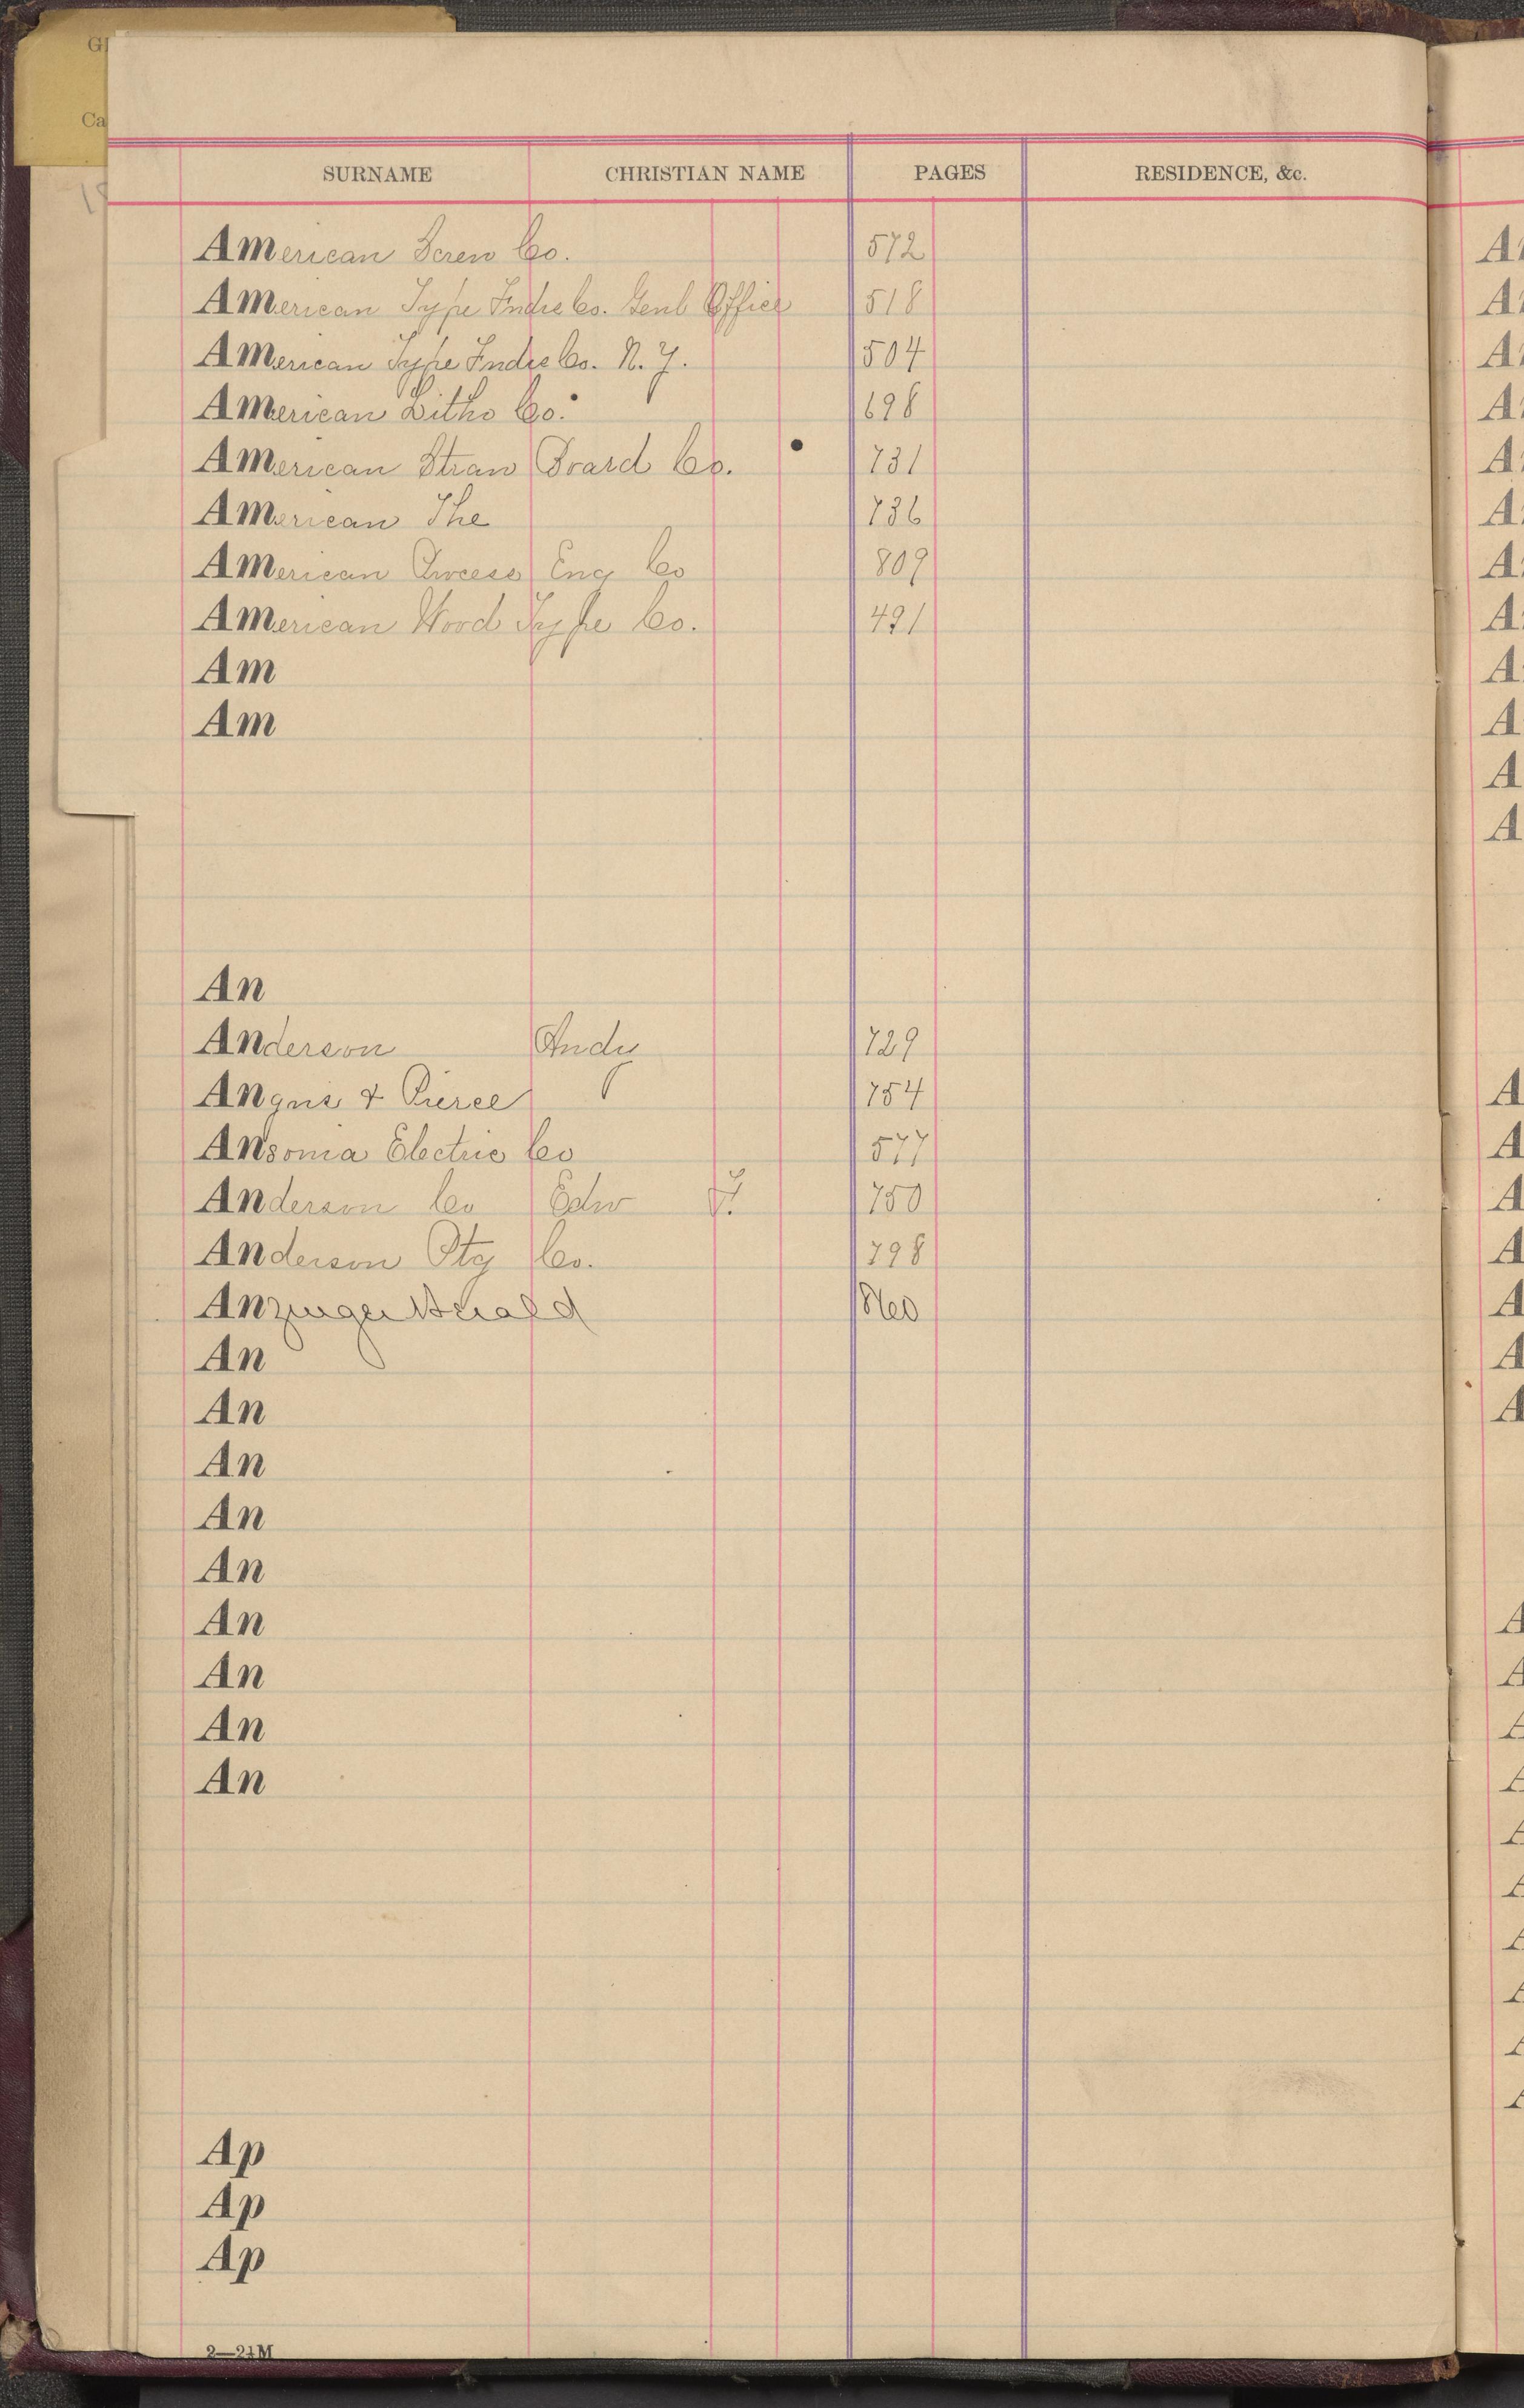 SURNAME CHRISTIAN NAME PAGES RESIDENCE, &c.
American Screw Co. 572
American Type Fndre Co. Genl Office 518
American Type Fndre Co. N. Y. 504
American Litho Co. 698
American Straw Board Co. 731
American The 736
American Process Eng Co 809
American Wood Type Co. 491
Am
Am
An
Anderson Andy 729
Angus & Pierce 754
Ansonia Electric Co 577
Anderson Co Edw F. 750
Anderson Ptg Co. 798
Anzeiger Herald
An
An
An
An
An
An
An
An
An
Ap
Ap
Ap
2—21M